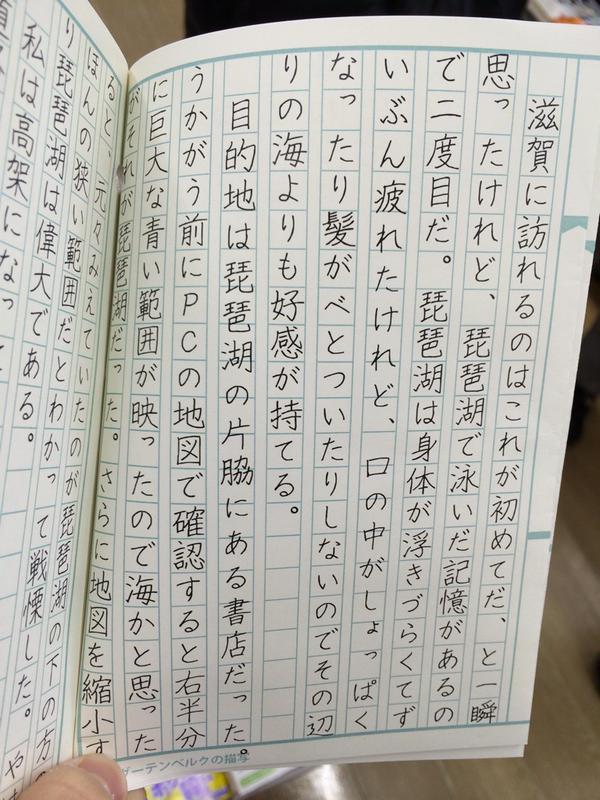 滋賀に訪れるのはこれが初めてだ、と一瞬
思ったけれど、琵琶湖で泳いだ記憶があるの
で二度目だ。琵琶湖は身体が浮きづらくてず
いぶん疲れたけれど、口の中がしょっぱく
なったり髪がべとついたりしないのでその辺
りの海よりも好感が持てる。
目的地は琵琶湖の片脇にある書店だった。
うかがう前にPCの地図で確認すると右半分
に巨大な青い範囲が映ったので海かと思った
がそれが琵琶湖だった。さらに地図を縮小す
ると、元々みえていたのが琵琶湖の下の方の
ほんの狭い範囲だとわかって戦慄した。や
り琵琶湖は偉大である。
私は高架になって
ガーテンベルクの描写